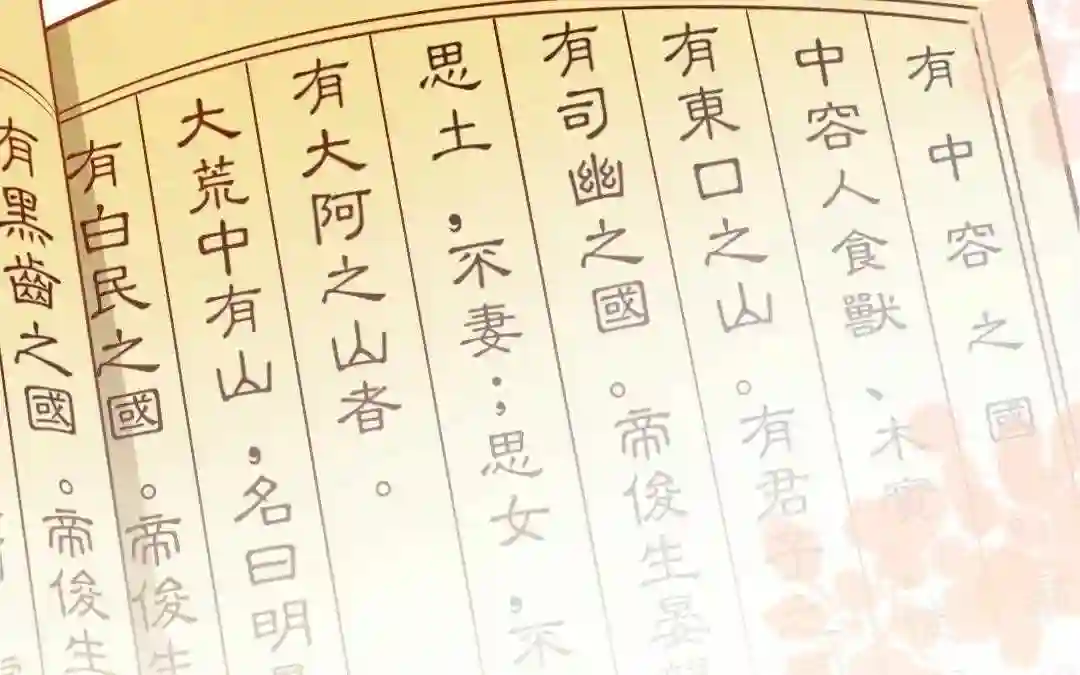 有中容之國
中容人食獸、木實
有東口之山。有君子之
有司幽之國。帝俊生晏
思土，不妻；思女，不
有大阿之山者。
大荒中有山，名曰明
有白民之國。帝俊生
有黑齒之國。帝俊生